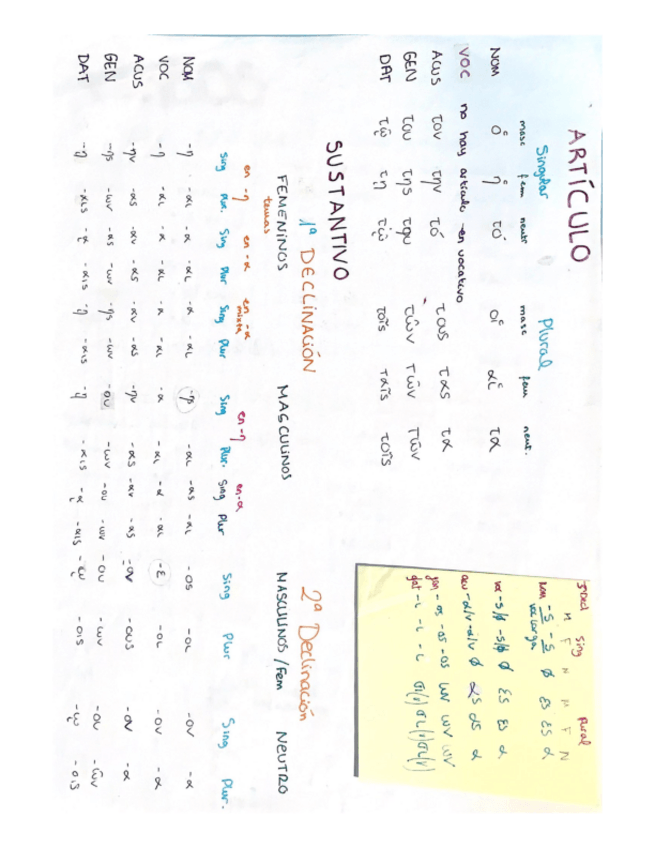 ARTÍCULO
Singular Plural
masc fem neutr masc fem neut.
NOM ὁ ἡ τό οἱ αἱ τα
VOC no hay artículo en vocativo
ACUS τον την τό τους τας τα
GEN του της του τῶν τῶν τῶν
DAT τῳ τῃ τῳ τοῖς ταῖς τοῖς
3ªDecl Sing Plural
M F N M F N
Nom -s -s ∅ ες ες α
voc larga
voc -s/∅ -s/∅ ∅ ες ες α
acu -α/ν -α/ν ∅ ας ας α
gen -ος -ος -ος ων ων ων
dat -ι -ι -ι σι(ν) σι(ν) σι(ν)
SUSTANTIVO
1ª DECLINACIÓN 2ª Declinación
FEMENINOS MASCULINOS MASCULINOS/Fem NEUTRO
temas
en -η en -α en -α mixta en -η en -α
Sing Plur. Sing Plur Sing Plur Sing Plur. Sing Plur Sing Plur Sing Plur.
NOM -η -αι -α -αι -α -αι -ης -αι -ας -αι -ος -οι -ον -α
VOC -η -αι -α -αι -α -αι -α -αι -α -αι -ε -οι -ον -α
ACUS -ην -ας -αν -ας -αν -ας -ην -ας -αν -ας -ον -ους -ον -α
GEN -ης -ων -ας -ων -ης -ων -ου -ων -ου -ων -ου -ων -ου -ῶν
DAT -ῃ -αις -ᾳ -αις -ῃ -αις -ῃ -αις -ᾳ -αις -ῳ -οις -ῳ -οις